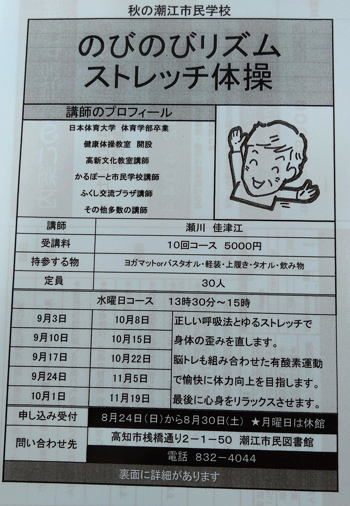 秋の潮江市民学校
のびのびリズム
ストレッチ体操
講師のプロフィール
日本体育大学 体育学部卒業
健康体操教室 開設
高新文化教室講師
かるぽーと市民学校講師
ふくし交流プラザ講師
その他多数の講師
講師 瀬川 佳津江
受講料 10回コース 5000円
持参する物 ヨガマットorバスタオル・軽装・上履き・タオル・飲み物
定員 30人
水曜日コース 13時30分～15時
9月3日 10月8日
9月10日 10月15日
9月17日 10月22日
9月24日 11月5日
10月1日 11月19日
正しい呼吸法とゆるストレッチで
身体の歪みを直します。
脳トレも組み合わせた有酸素運動
で愉快に体力向上を目指します。
最後に心身をリラックスさせます。
申し込み受付 8月24日(日)から8月30日(土) ★月曜日は休館
問い合わせ先 高知市桟橋通り2-1-50 潮江市民図書館
電話 832-4044
裏面に詳細があります